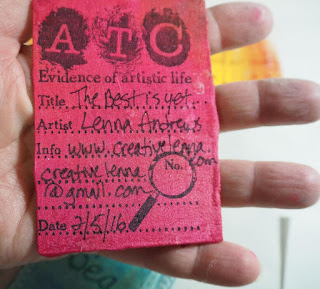 ATC
Evidence of artistic life
Title The Best is yet
Artist Lenna Andrews
Info www.creativelenna.com
creativelenna No.
7@gmail.com
Date 2/5/16
Sea